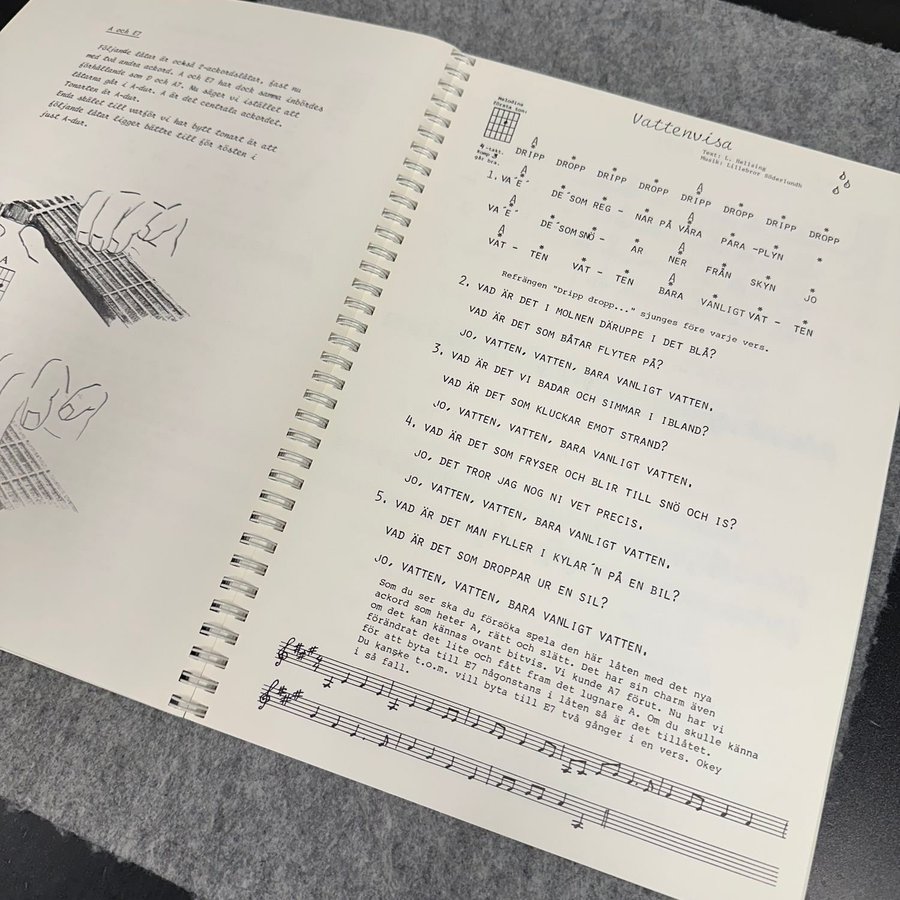 A och E7
Följande låtar är också 2-ackordslåtar, fast nu
med två andra ackord. A och E7 har dock samma inbördes
förhållande som D och A7. Nu säger vi istället att
låtarna går i A-dur. A är det centrala ackordet.
Tonarten är A-dur.
Enda skälet till varför vi har bytt tonart är att
följande låtar ligger bättre till för rösten i
just A-dur.
A
Vattenvisa
Text: L. Hellsing
Musik: Lillebror Söderlundh
Melodins
första ton:
4-takt.
Komp 3
går bra.
A A
DRIPP DROPP DRIPP DROPP DRIPP DROPP DRIPP DROPP
A A
1. VA´E´ DE´SOM REG - NAR PÅ VÅRA PARA -PLYN
A A
VA´E´ DE´SOM SNÖ - AR NER FRÅN SKYN JO
A A
VAT - TEN VAT - TEN BARA VANLIGT VAT - TEN
Refrängen "Dripp dropp..." sjunges före varje vers.
2. VAD ÄR DET I MOLNEN DÄRUPPE I DET BLÅ?
VAD ÄR DET SOM BÅTAR FLYTER PÅ?
JO, VATTEN, VATTEN, BARA VANLIGT VATTEN.
3. VAD ÄR DET VI BADAR OCH SIMMAR I IBLAND?
VAD ÄR DET SOM KLUCKAR EMOT STRAND?
JO, VATTEN, VATTEN, BARA VANLIGT VATTEN.
4. VAD ÄR DET SOM FRYSER OCH BLIR TILL SNÖ OCH IS?
JO, DET TROR JAG NOG NI VET PRECIS.
JO, VATTEN, VATTEN, BARA VANLIGT VATTEN.
5. VAD ÄR DET MAN FYLLER I KYLAR´N PÅ EN BIL?
VAD ÄR DET SOM DROPPAR UR EN SIL?
JO, VATTEN, VATTEN, BARA VANLIGT VATTEN.
Som du ser ska du försöka spela den här låten med det nya
ackord som heter A, rätt och slätt. Det har sin charm även
om det kan kännas ovant bitvis. Vi kunde A7 förut. Nu har vi
förändrat det lite och fått fram det lugnare A. Om du skulle känna
för att byta till E7 någonstans i låten så är det tillåtet.
Du kanske t.o.m. vill byta till E7 två gånger i en vers. Okey
i så fall.